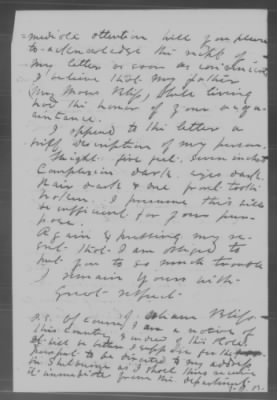 mediate attention will you please
to acknowledge the receipt of
my letter as soon as convenient
I believe that my father
Mr Moses Bliss, while living
had the honor of your acqu-
aintance.
I append to this letter a
brief description of my person.
Height five feet seven inches
Complexion dark eyes dark
Hair dark & one front tooth
broken. I presume this will
be sufficient for your pur-
pose.
Again expressing my re-
gret that I am obliged to
put you to so much trouble
I remain Yours with
Great respect
Bliss
P.S. Of course I am a native of
this Country & indeed of this State.
It will be better I suppose for the
passport to be directed to my address
in as I shall thus receive
it immediate from the department.